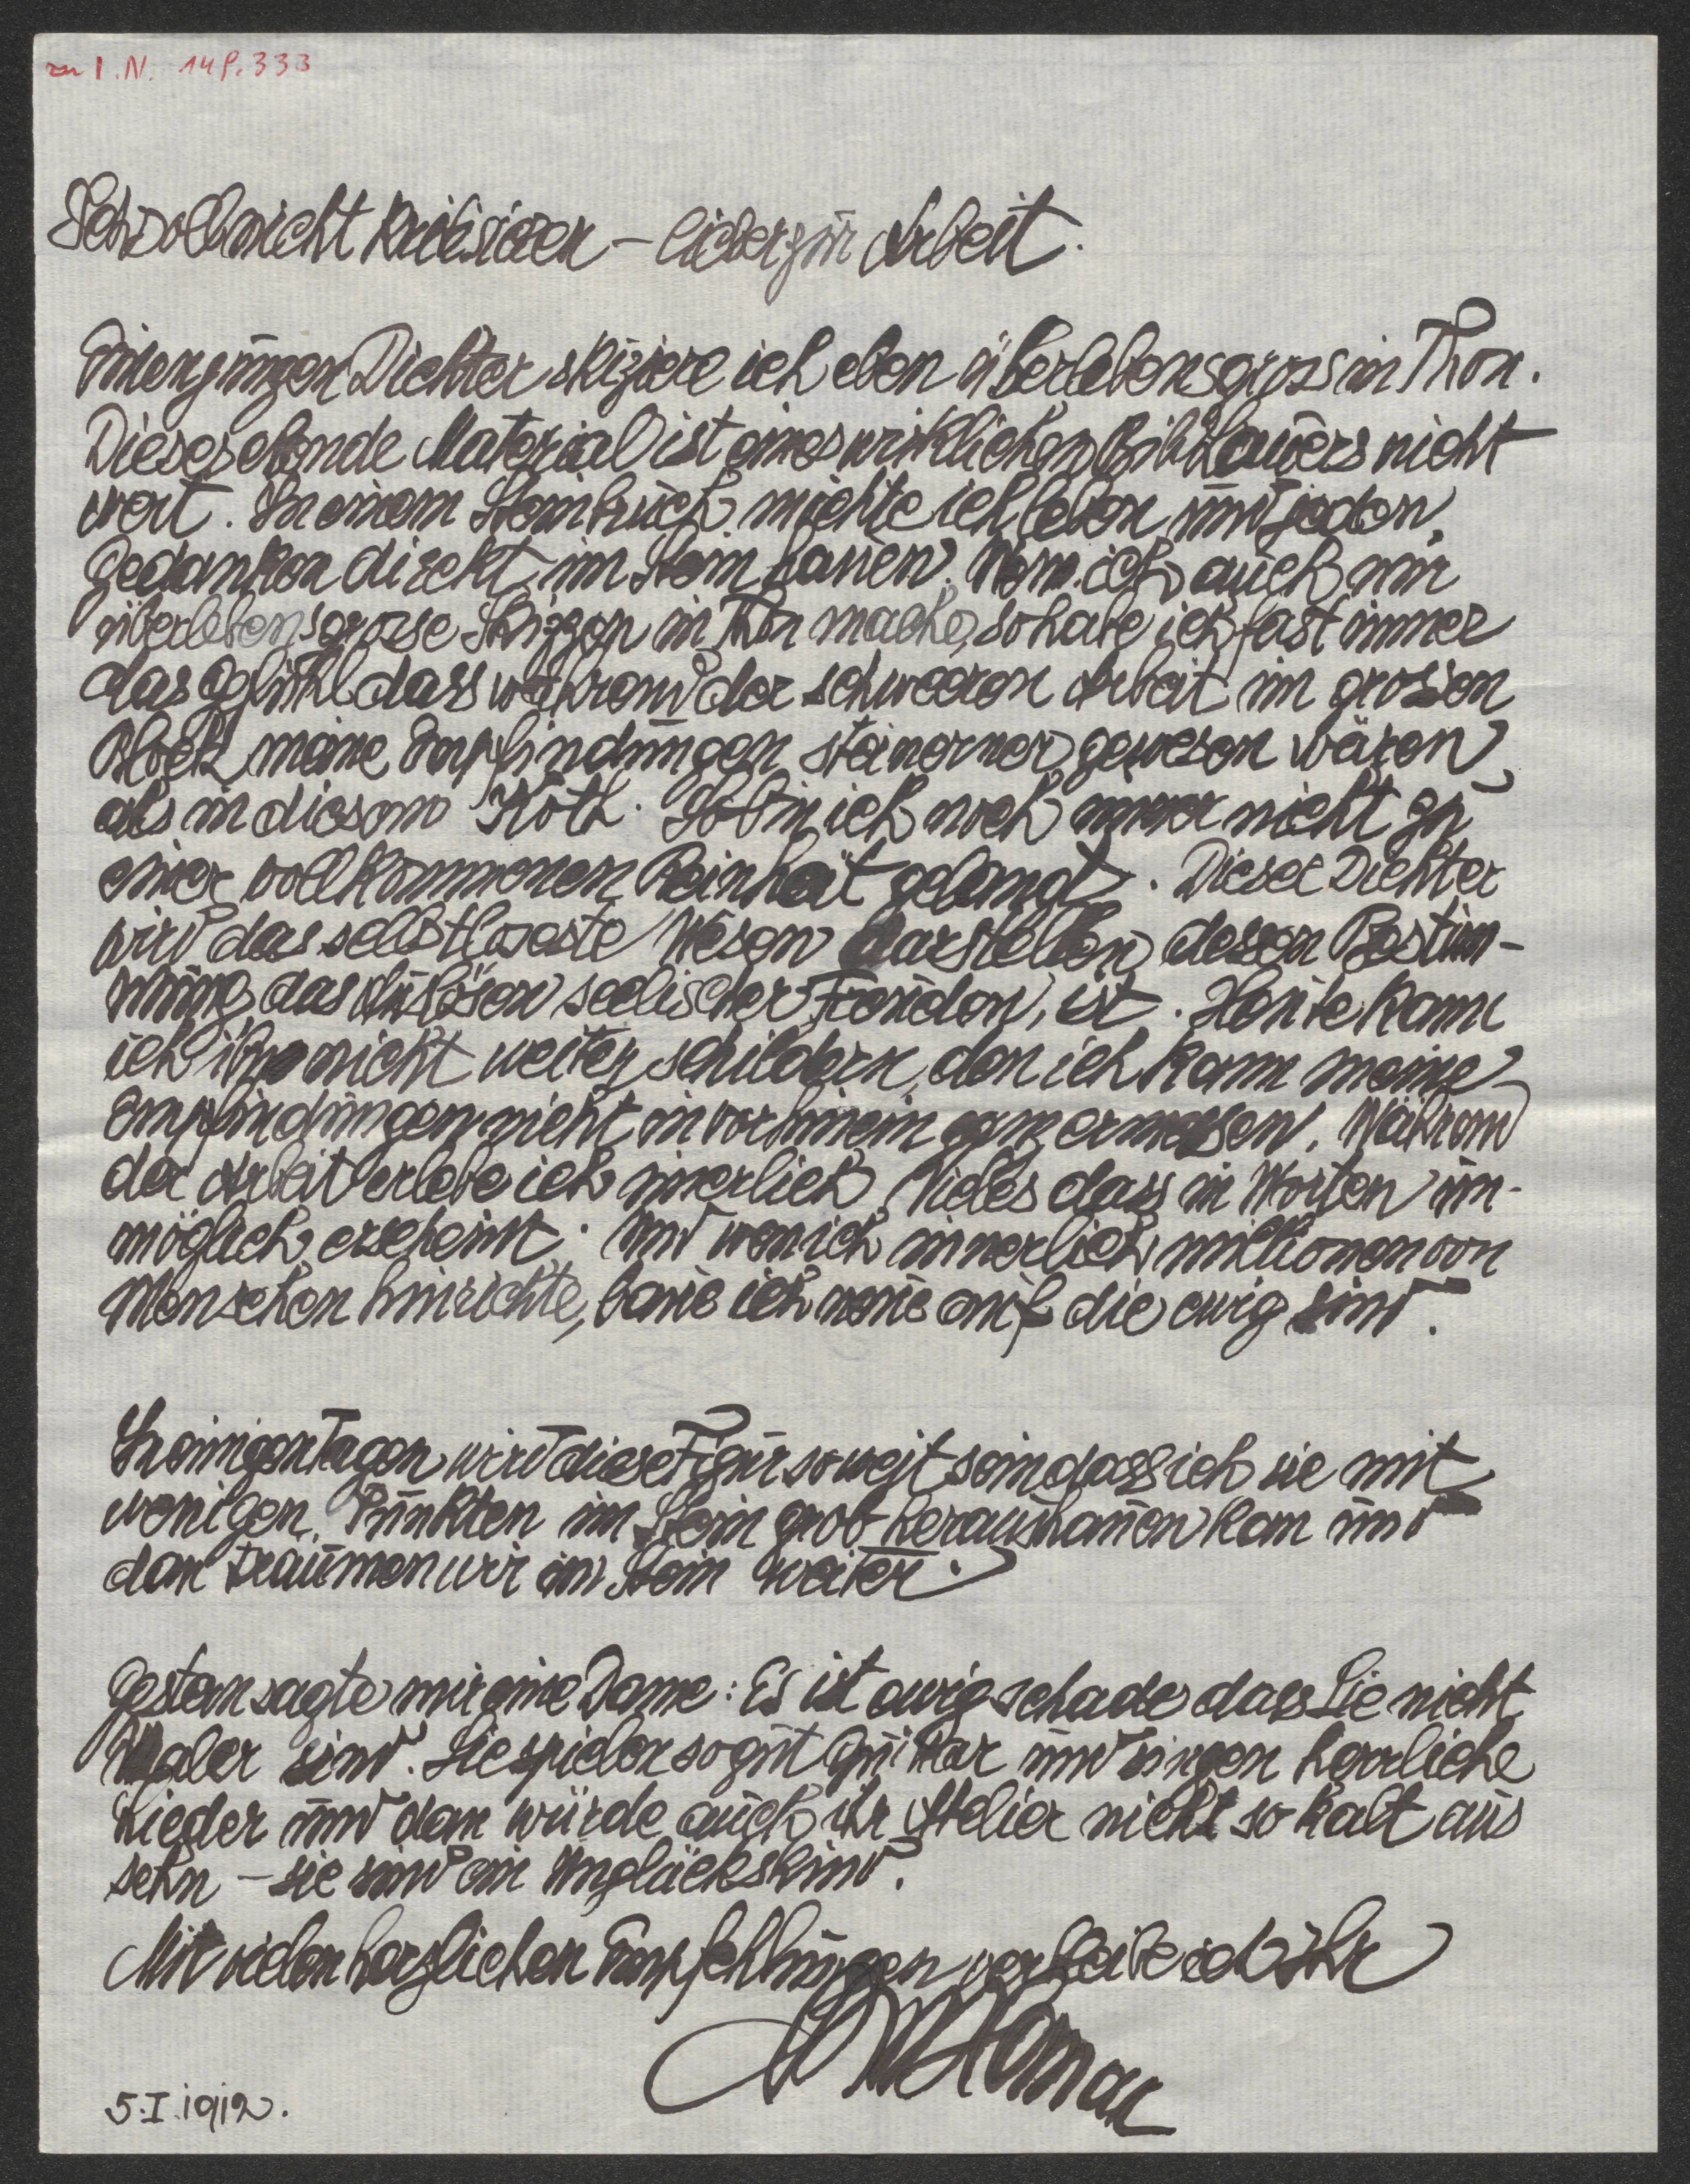 zu I.N. 148.333
Ich soll nicht kritisieren – lieber zur Arbeit.
Einen jungen Dichter skizziere ich eben überlebensgross in Thon.
Dieses elende Material ist eines wirklichen Bildhauers nicht
wert. In einem Steinbruch möchte ich leben und jeden
Gedanken direkt im Stein hauen. Wenn ich auch nur
überlebensgrosse Skizzen in Thon mache, so habe ich fast immer
das Gefühl dass während der schweeren Arbeit im grossen
Block meine Empfindungen steinerner gewesen wären
als in diesem Koth. So bin ich noch immer nicht zu
einer vollkommenen Reinheit gelangt. Dieser Dichter
wird das selbstloseste Wesen darstellen, dessen Bestim-
mung das Auslösen seelischer Freuden, ist. Heute kann
ich ihn nicht weiter schildern, den ich kann meine
Empfindungen nicht in vorhinein ganz ermessen. Während
der Arbeit erlebe ich innerlich Vieles dass in Worten un-
möglich erscheint. Und wen ich innerlich millionen von
Menschen hinrichte, baue ich neue auf die ewig sind.
In einigen Tagen wird diese Figur so weit sein dass ich sie mit
wenigen Punkten im Stein grob heraushauen kan und
dan träumen wir im Stein weiter.
Gestern sagte mir eine Dame: Es ist ewig schade dass Sie nicht
Maler sind. Sie spielen so gut Guitar und singen herrliche
Lieder und dan würde auch ihr Atelier nicht so kalt aus
sehn – sie sind ein Unglückskind.
Mit vielen herzlichen Empfehlungen verbleibe ich Ihr
5.I.1912.